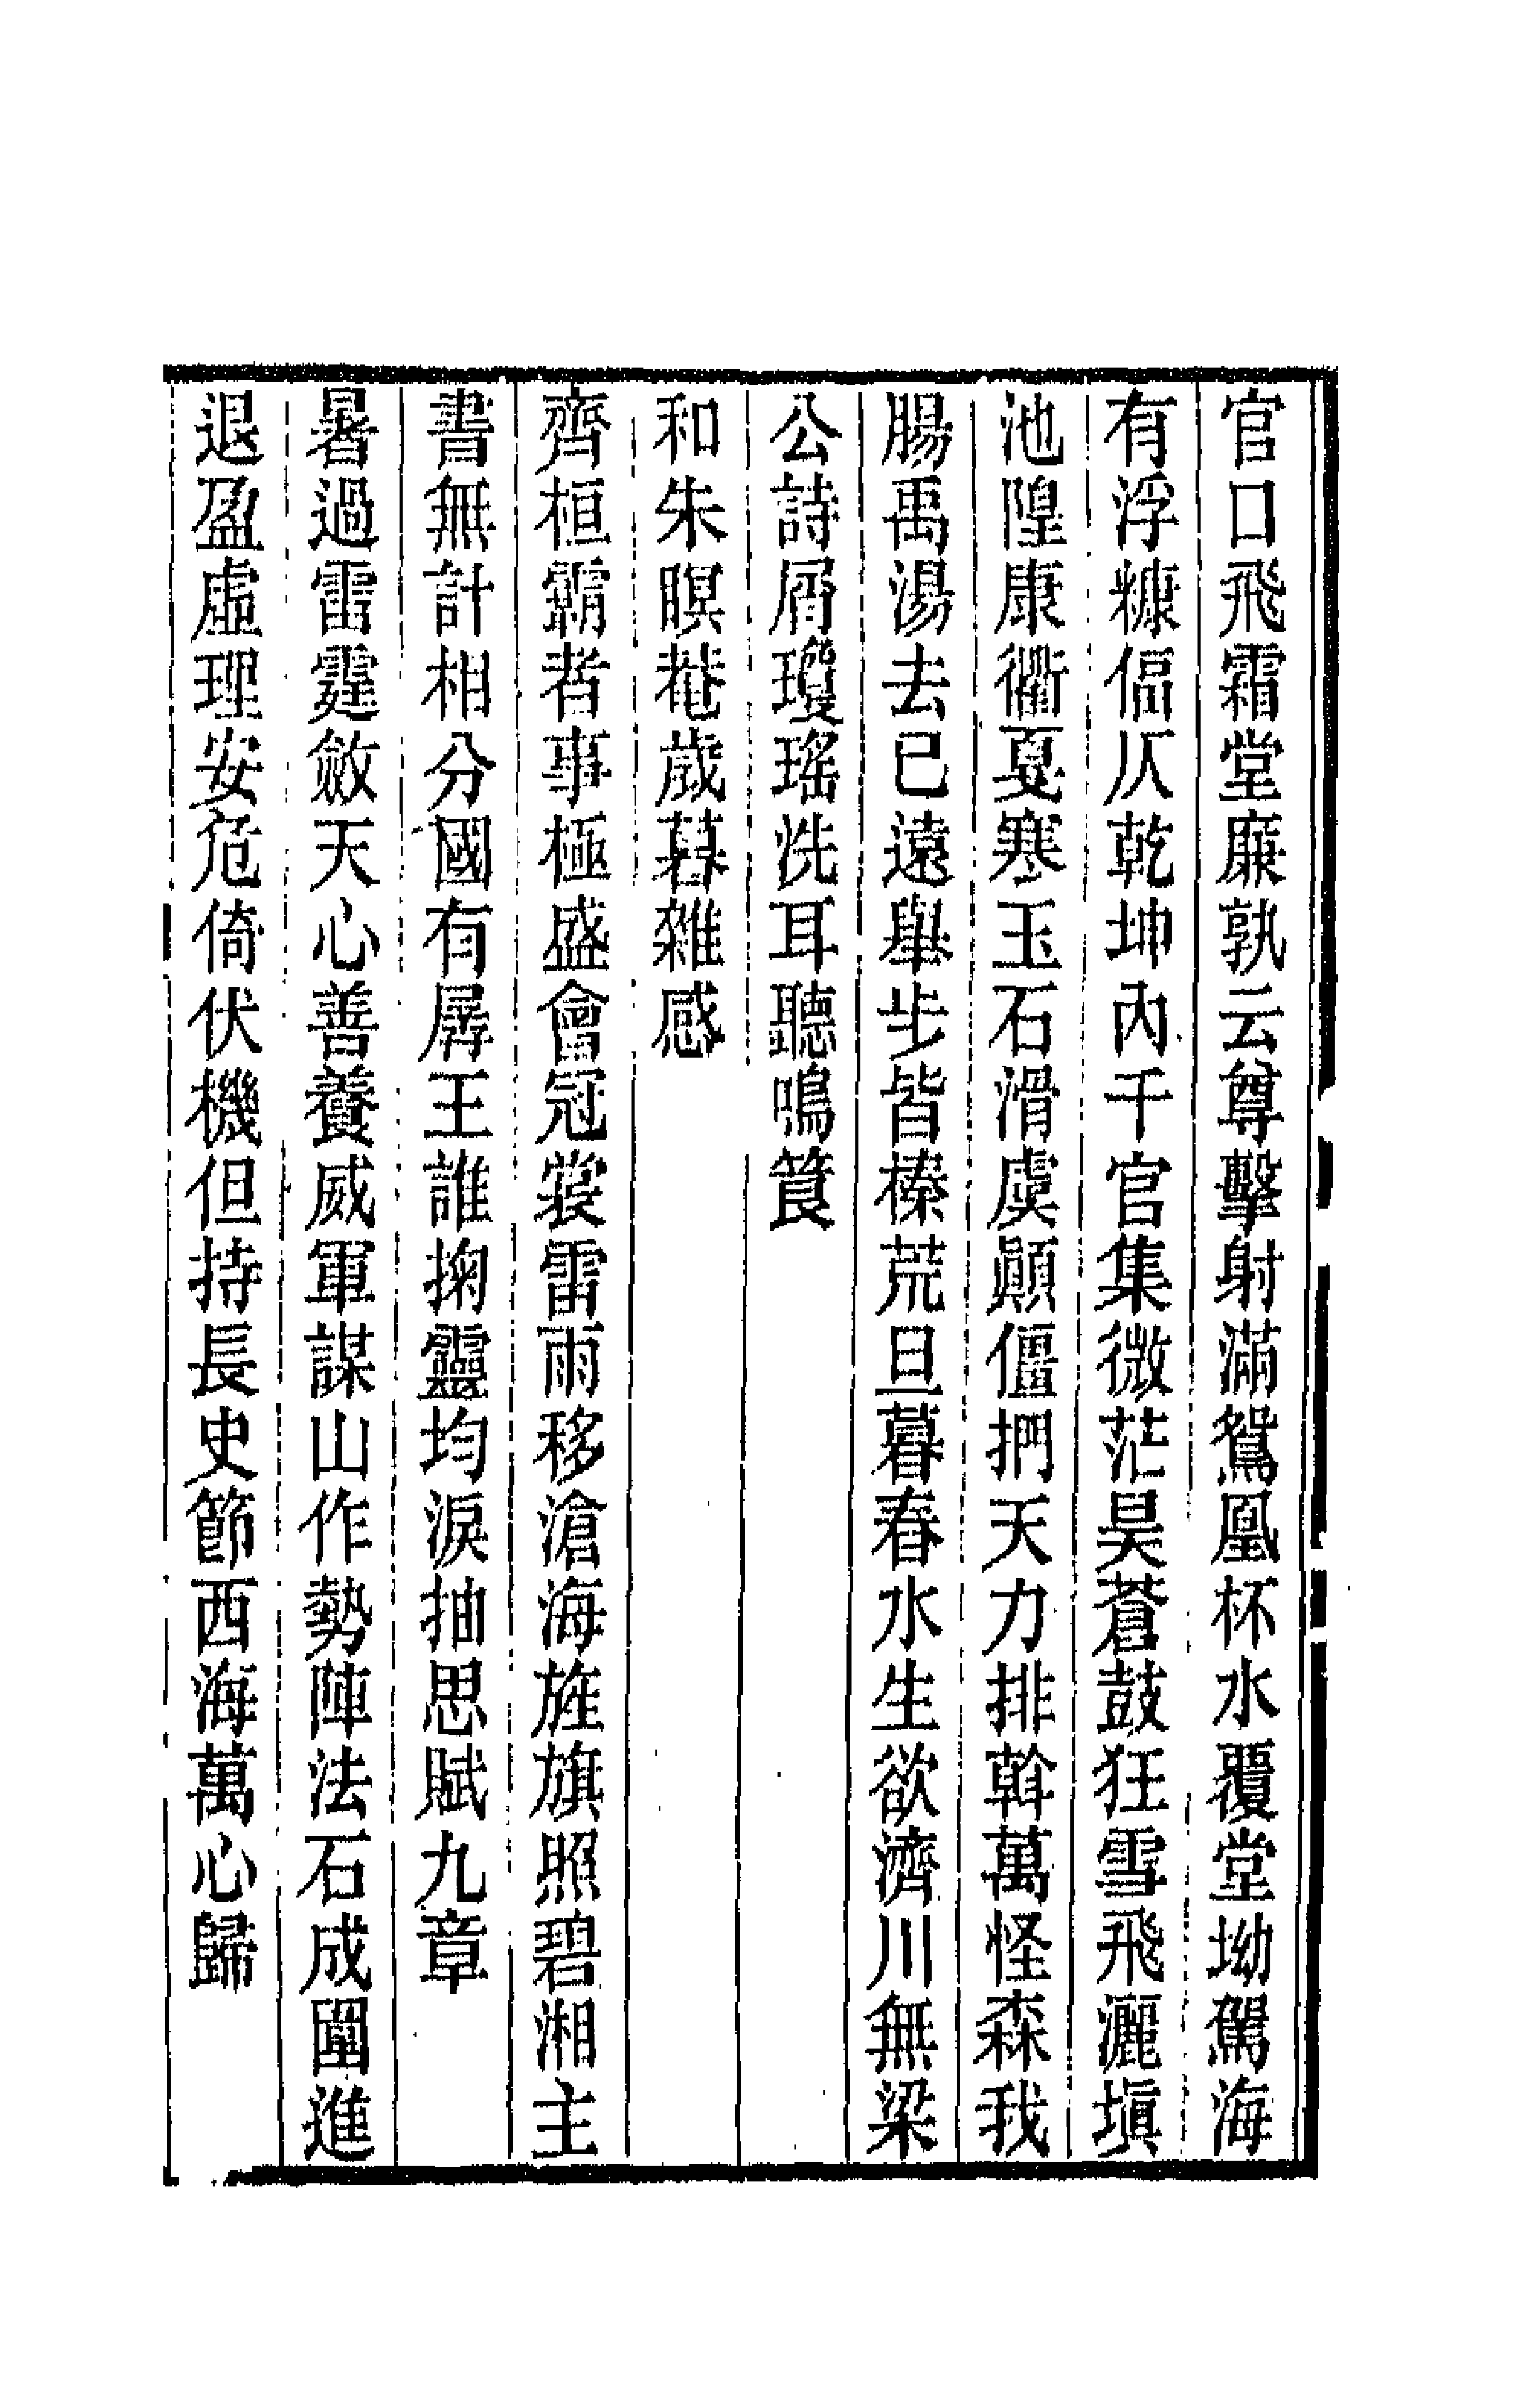 官口飛霜堂廉孰云尊擊射滿鴛凰杯水覆堂坳駕海
有浮糠偪仄乾坤內千官集微茫昊蒼鼓狂雪飛灑塡
池隍康衢戛寒玉石滑虞顚僵捫天力排斡萬怪森我
腸禹湯去已遠舉步皆榛荒旦暮春水生欲濟川無梁
公詩屑瓊瑤洗耳聽鳴篔
和朱暝菴歲暮雜感
齊桓霸者事極盛會冠裳雷雨移滄海旌旗照碧湘主
書無計相分國有孱王誰掬靈均淚抽思賦九章
暑過雷霆斂天心善養威軍謀山作勢陣法石成圍進
退盈虛理安危倚伏機但持長史節西海萬心歸